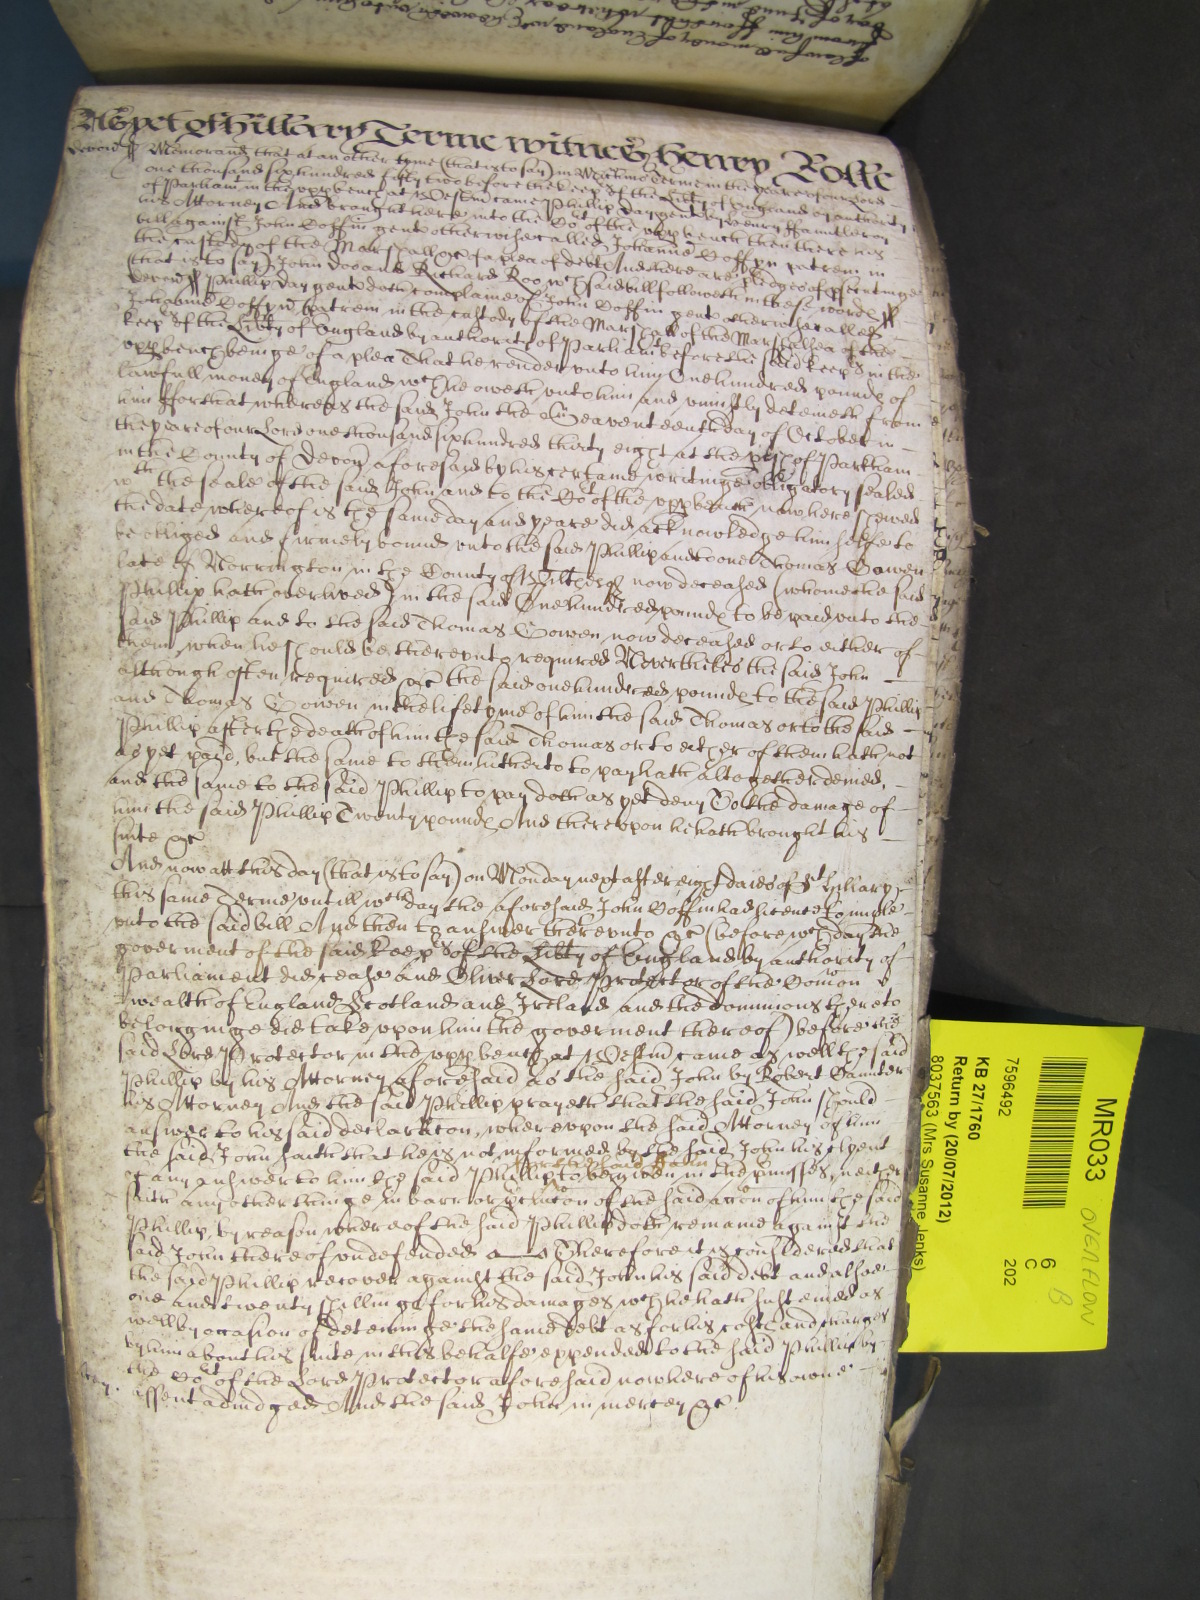 As yet of Hillary Terme witnes Henry Rolle
Devon ss Memorand that at an other tyme (that is to say) in Michmas Terme in the yeare of our Lord
one thousand six hundred fifty two before the Keeps of the Libty of England by authority
of Parliam in the vpp bench at Westm came Phillip Day gent by Henry
his Attorney And brought here into the Cot of the vpp bench then there his
bill against John Coffin gent otherwise called Johanne Coffyn patrem in
the custody of the Marshall &c of a plea of debt And there are pledges of psecutinge
(that is to say) John Doo and Richard Roo wch said bill followeth in these words ss
Devon ss Phillip Day gent doth complaine of John Coffin gent otherwise called
Johanne Coffyn patrem in the custody of the Marshall of the Marshallsea of the
keeps of the Libty of England by authority of Parliamt before the said keeps in the
vpp bench beinge of a plea That he render vnto him One hundred pounds of
lawfull money of England wch he oweth vnto him and vniustly deteineth from
him ffor that whereas the said John the Seaventeenth day of October in
the yeare of our Lord one thousand six hundred thirty eight at the pish of Parkham
in the County of Devon aforesaid by his certaine writinge obligatory sealed
wth the seale of the said John and to the Cot of the vpp bench now here shewed
the date whereof is the same day and yeare did acknowledge him selfe to
be obliged and firmely bound vnto the said Phillip and to one Thomas Gowen
late of Norrington in the County of Wiltes now deceased (whome the said
Phillip hath overlived) in the said One hundred pounds to be paid vnto the
said Phillip and to the said Thomas Gowen now deceased or to either of
them when he should be therevnto required Neverthelesse the said John
although often required &c the said one hundred pounds to the said Phillip
and Thomas Gowen in the life tyme of him the said Thomas or to the said
Phillip after the death of him the said Thomas or to either of them hath not
as yet paid, but the same to them hitherto to pay hath altogether denied,
and the same to the said Phillip to pay doth as yet deny To the damage of
him the said Phillip Twenty pounds And therevpon he hath brought his
suite &c
And now att this day (that is to say) on Monday next after eight daies of St Hillary
this same Terme vntill wch day the aforesaid John Coffin had licence to imple
vnto the said bill And then to answer therevnto &c (before wch day the
goverment of the said keeps of the Libty of England by authority of
Parliament did cease and Oliver Lord Protector of the Comon
wealth of England Scotland and Ireland and the dominions thereto
belonginge did take vpon him the goverment thereof) before the
said Lord Protector in the vpp bench at Westm came as well the said
Phillip by his Attorney aforesaid as the said John by Robert
his Attorney And the said Phillip prayeth that the said John should
answer to his said declaracon, wherevpon the said Attorney of him
the said John saith that he is not informed by the said John his clyent
for the said John
of any answer to him the said Phillip to be given in the pmisses, neither
saith any other thinge in barr or pclucon of the said accon of him the said
Phillip, by reason whereof the said Phillip doth remaine against the
said John thereof vndefended Therefore it is considered that
the said Phillip recover against the said John his said debt and alsoe
one and twenty shillings for his damages wch he hath susteined as
well by occasion of deteininge the same debt as for his costs and charges
by him about his suite in this behalfe expended to the said Phillip by
the Cot of the Lord Protector aforesaid now here of his owne
assent adiudged And the said John in mercy &c
MR033
OVERFLOW
B
6
C
202
7596492
KB 27/1760
Return by (20/07/2012)
8037563 (Mrs Susanne Jenks)